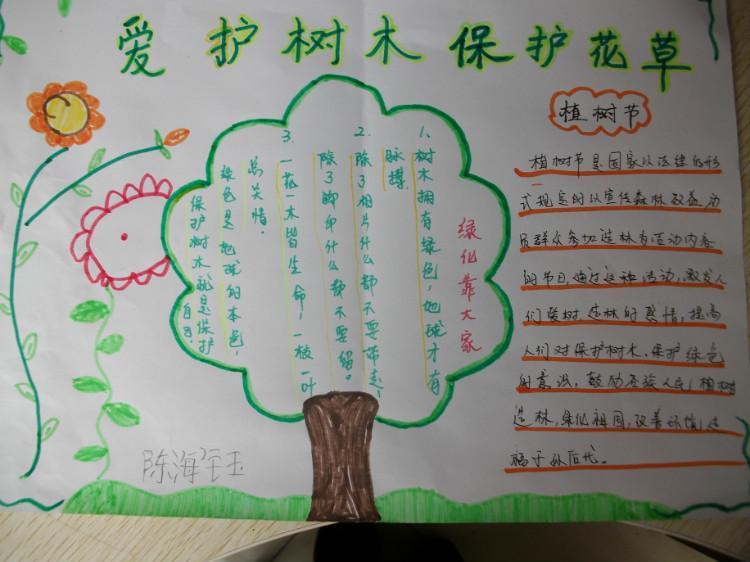 爱护树木 保护花草
绿化靠大家
1、树木拥有绿色,地球才有
脉搏。
2、除了相片什么都不要带走,
除了脚印什么都不要留。
3、一花一木皆生命,一枝一叶
总笑情。
绿色是地球的本色,
保护树木就是保护
自己.
植树节
植树节是国家以法律的形
式规定的以宣传森林效益,动
员群众参加造林为活动内容
的节日,通过这种活动,激发人
们爱树造林的感情,提高
人们对保护树木,保护绿色
的意识,鼓励各族人民,植树
造林,绿化祖国,改善环境,造
福于孙后代。
陈海